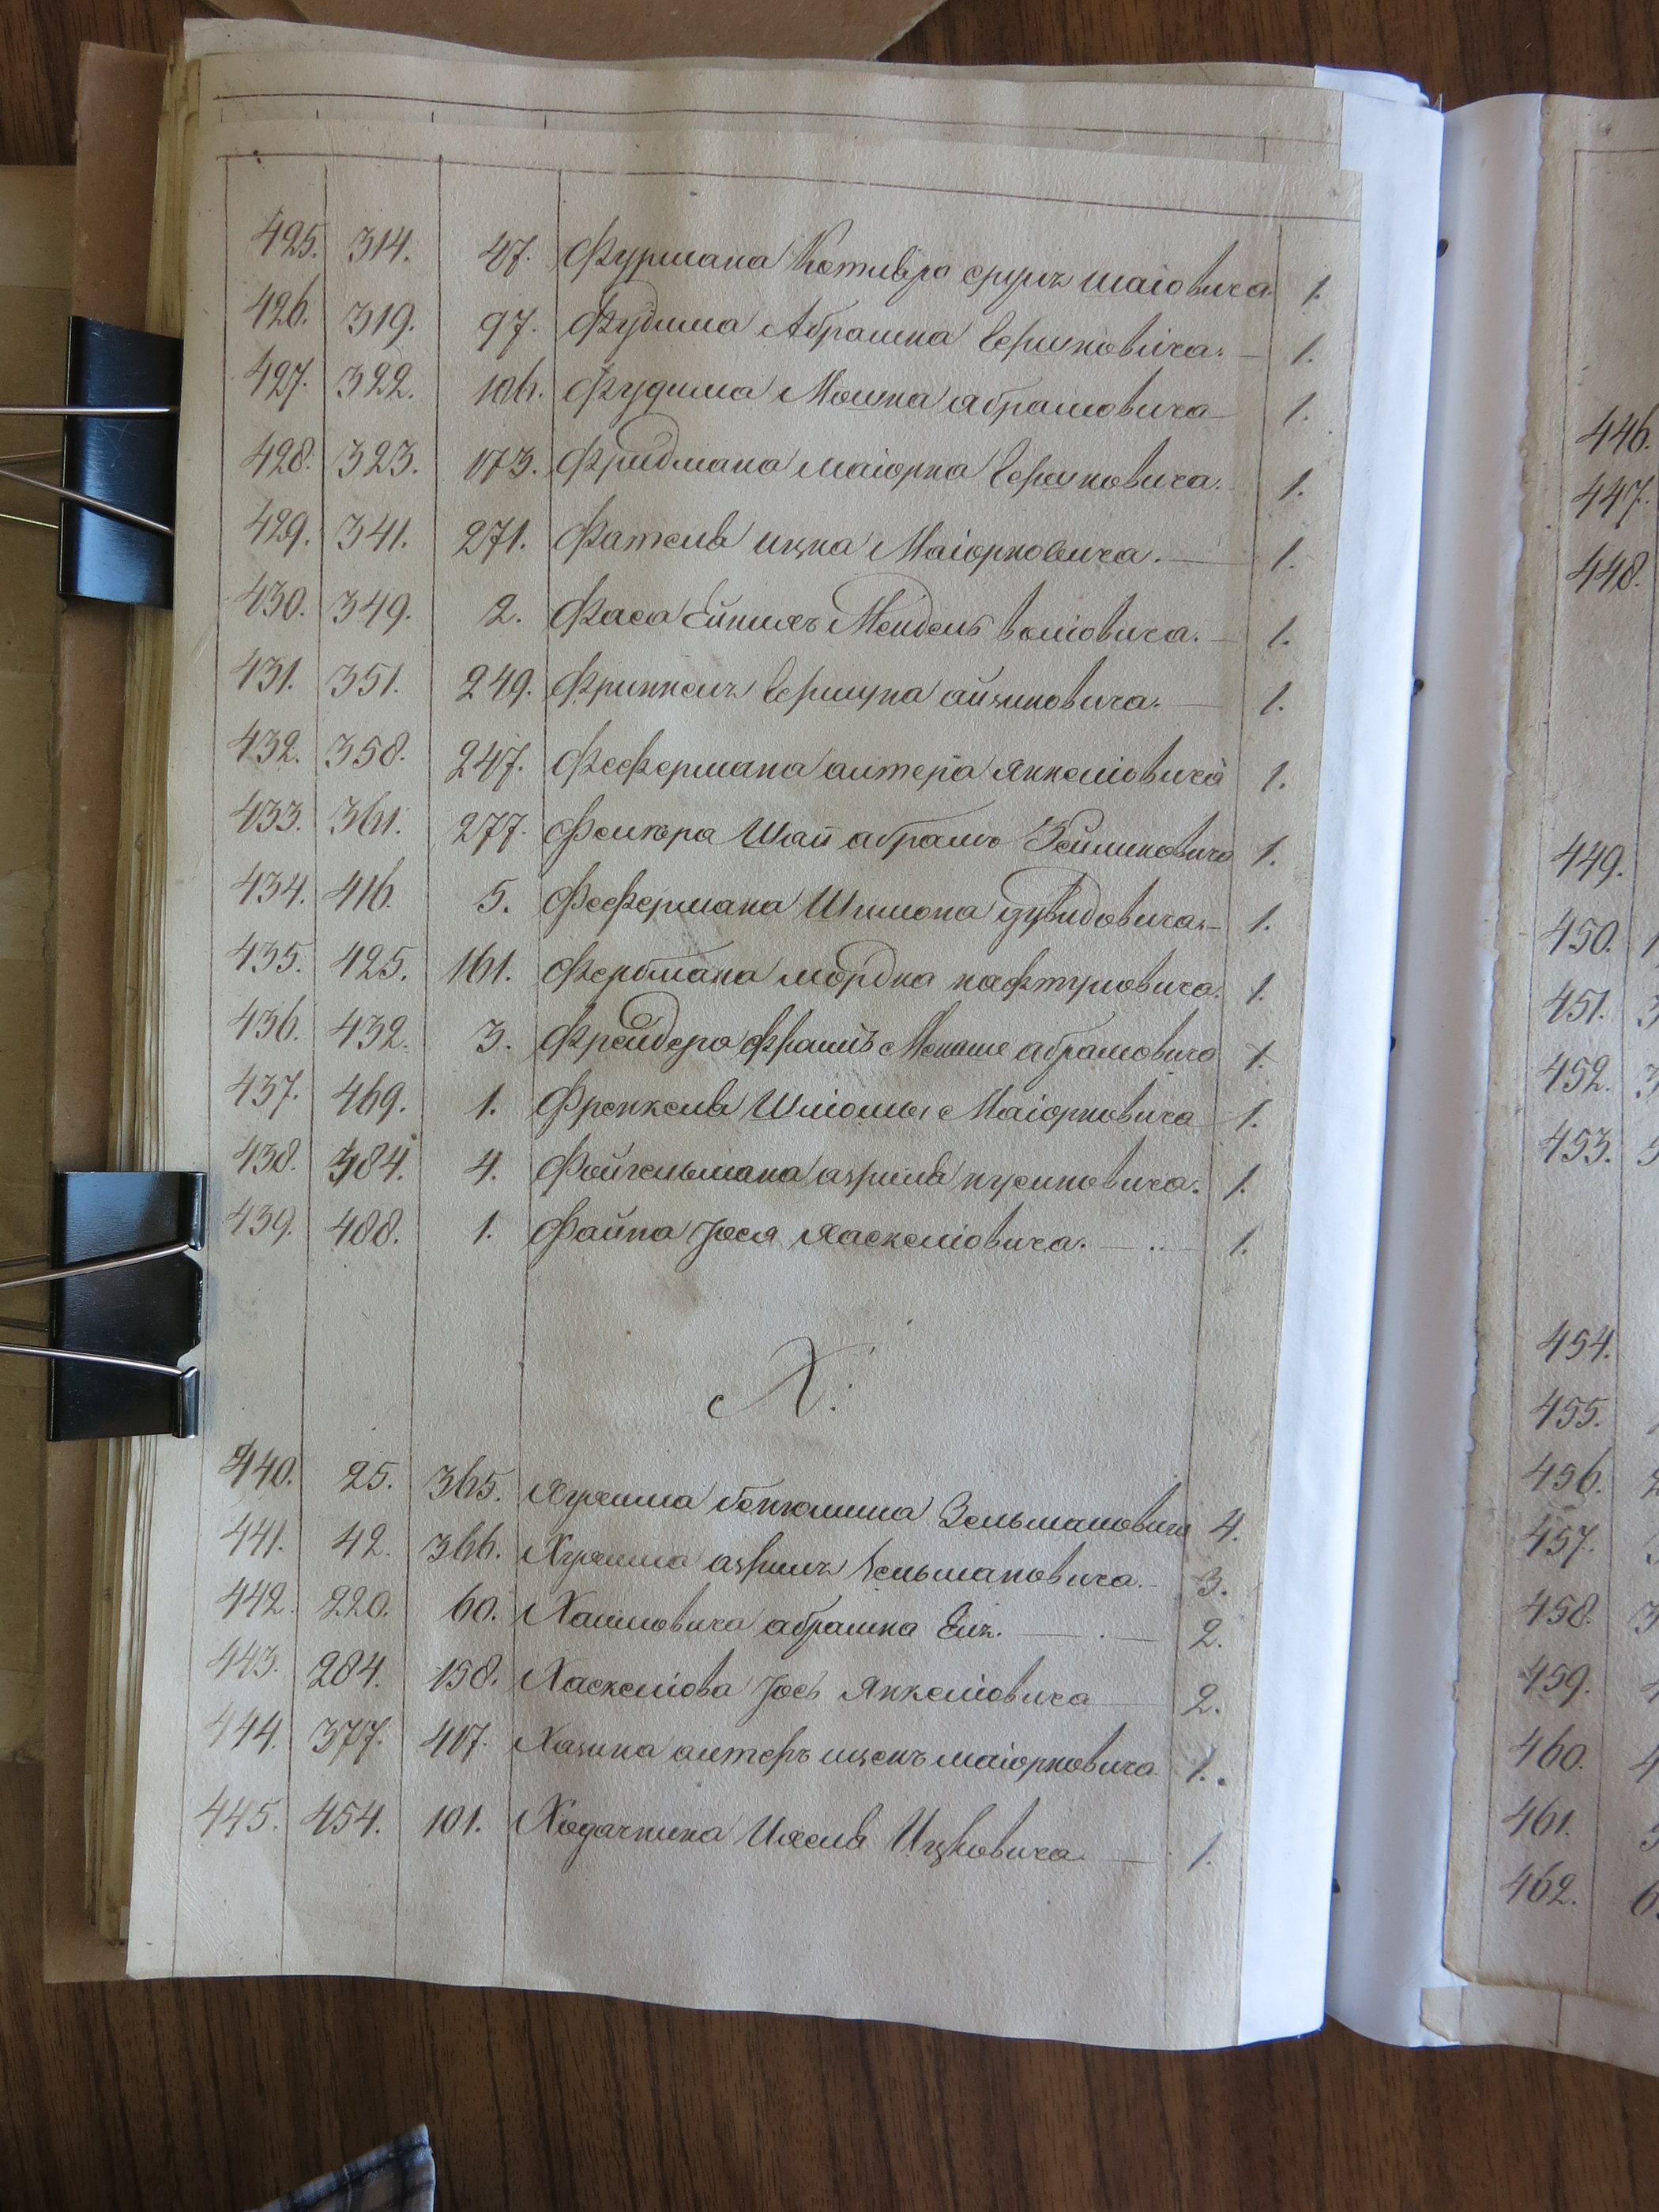 425. 314. 47. Фурмана Сруль Шаіовича 1.
426. 319. 97. Фудима Абрамка Гершковича. — 1.
427. 322. 106. Фудима Мошка Абрамовича 1.
428. 323. 173. Фридмана Маіорка Гершковича. 1.
429. 341. 271. Фатель Ицка Маіорковича. — 1.
430. 349. 2. Фаса Мендель Воліовича. — 1.
431. 351. 249. Френкель Гершука Айзиковича. — 1.
432. 358. 247. Фефермана Алтера Янкеліовича 1.
433. 361. 277. Фелкера Шаи Абрамъ Зейликовича 1.
434. 416. 5. Фефермана Шимона Дувидовича. — 1.
435. 425. 161. Фербмана Мордка Нафтуловича. 1.
436. 432. 3. Фрейдера Менаше Абрамовича 1.
437. 469. 1. Френкель Шліомы Маіорковича 1.
438. 484. 4. Фойгельмана Азриль Нусиновича. 1.
439. 488. 1. Файна Іося Хаскеліовича. — .. — 1.
Х.
440. 25. 365. Хужина Бенюмина Зельмановича 4.
441. 42. 366. Хужина Азриль Зельмановича. — 3.
442. 220. 60. Хаимовича Абрамка — . — 2.
443. 284. 158. Хаскеліова Іось Янкеліовича — 2.
444. 377. 407. Хазина Алтеръ Ицекъ Маіорковича 1.
445. 454. 101. Ходачника Ихель Ицковича. — 1.
446.
447.
448.
449.
450.
451.
452.
453.
454.
455.
456.
457.
458.
459.
460.
461.
462.